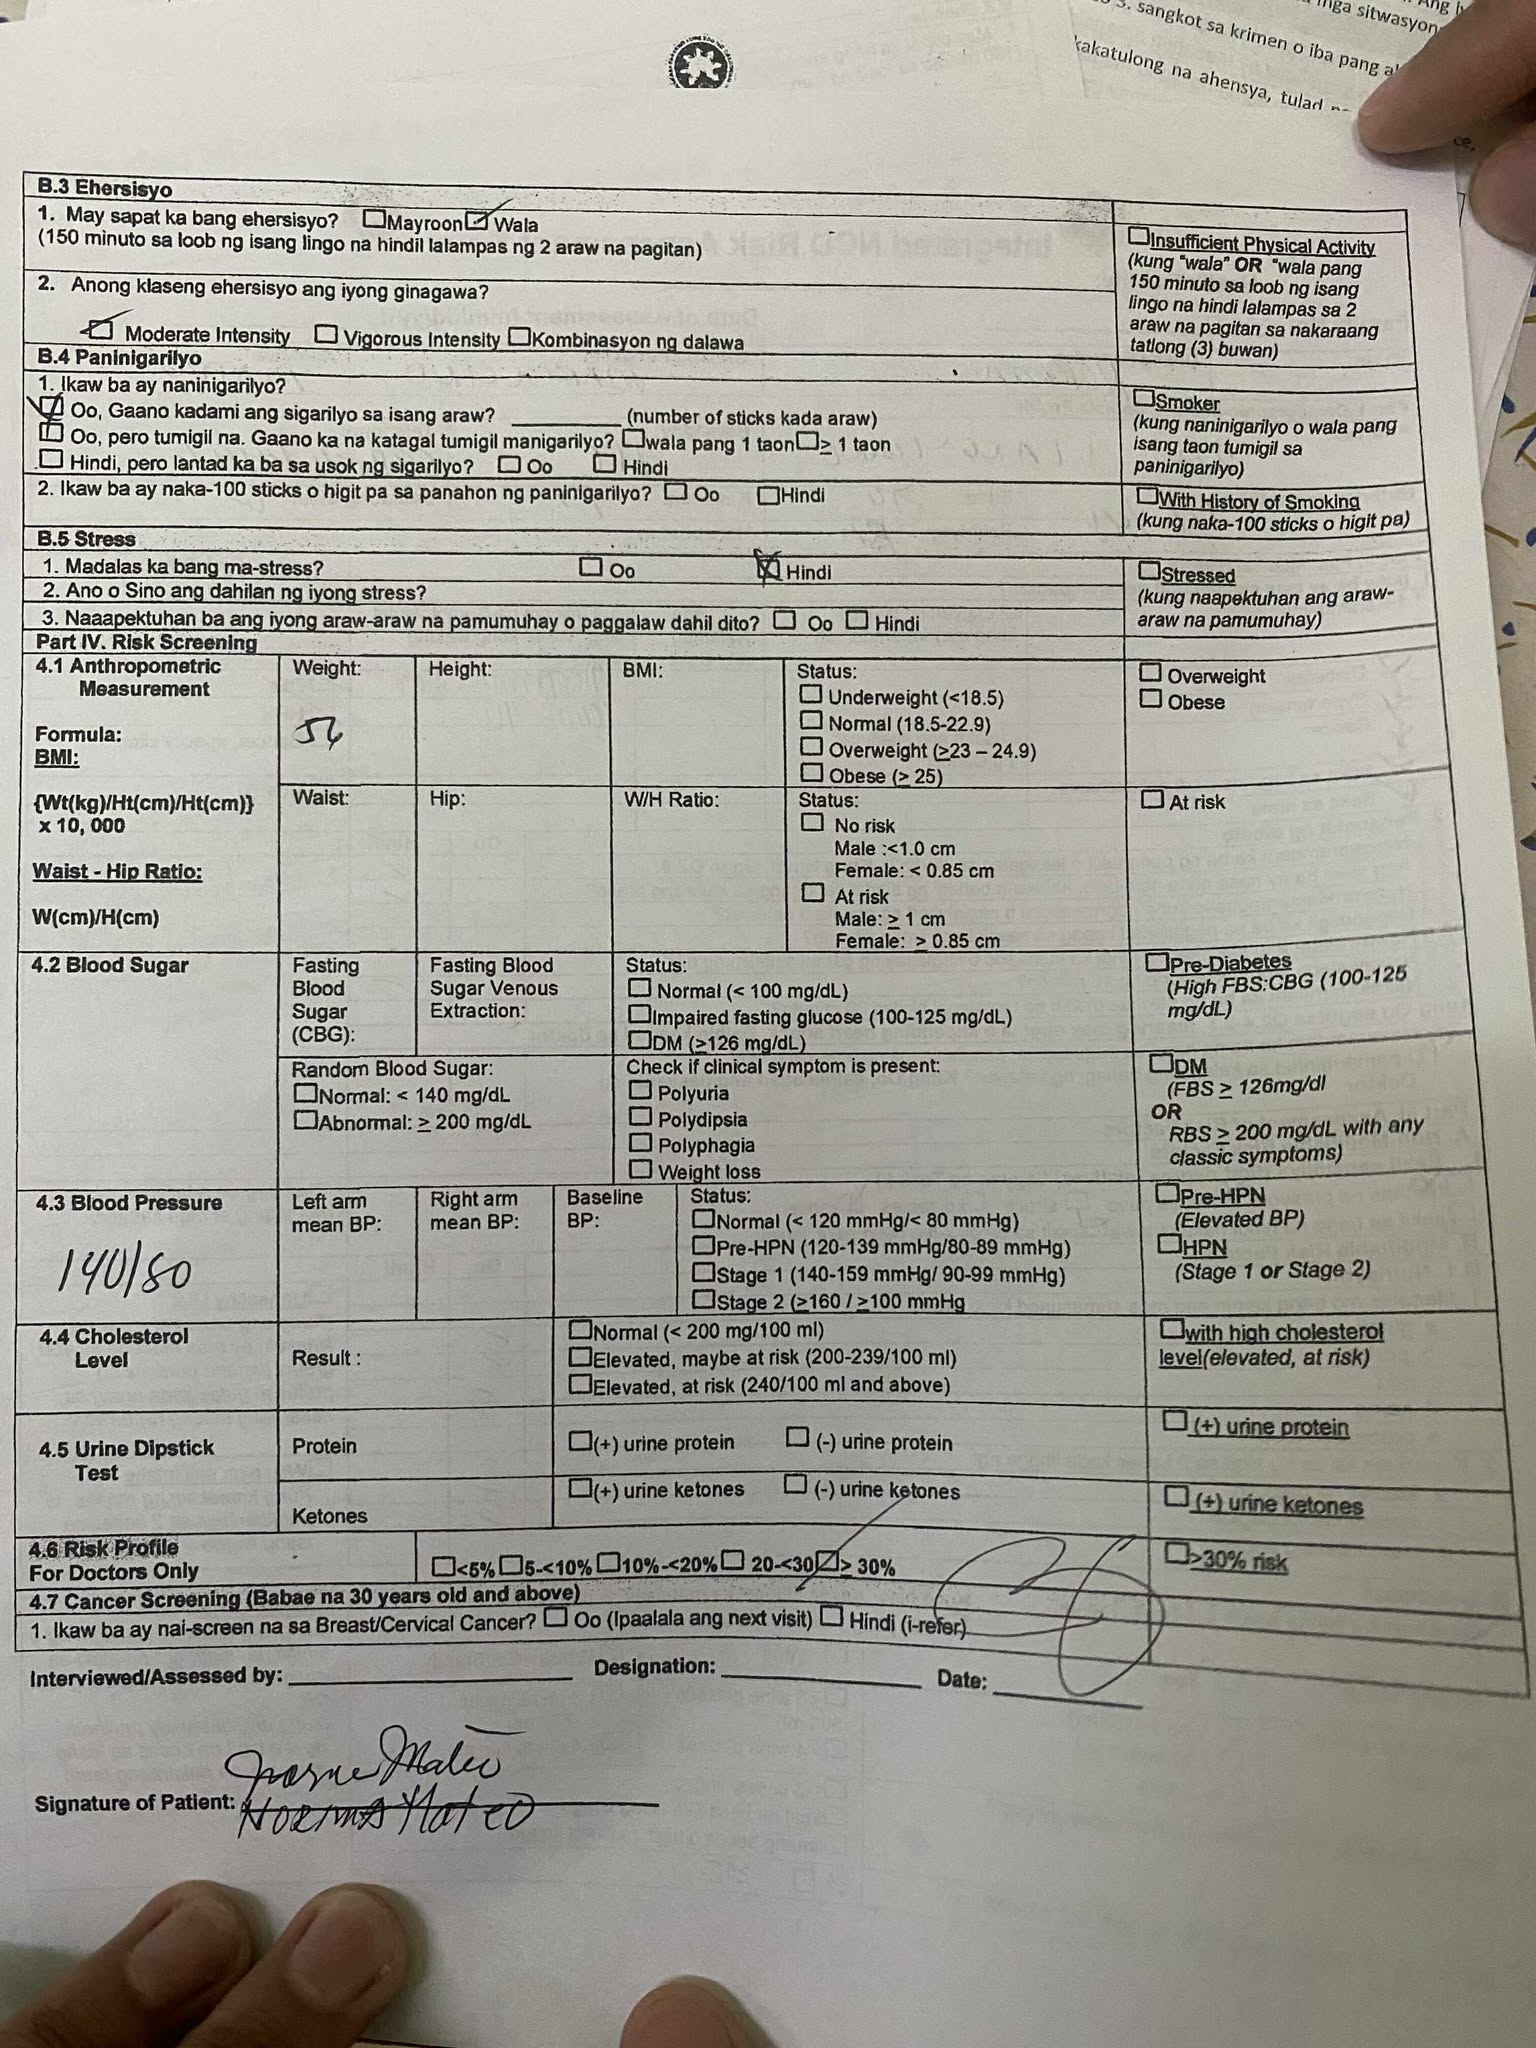 nga sitwasyon
3. sangkot sa krimen o iba pang
kakatulong na ahensya, tulad
B.3 Ehersisyo
1. May sapat ka bang ehersisyo? ☐Mayroon ☑ Wala
(150 minuto sa loob ng isang lingo na hindil lalampas ng 2 araw na pagitan)
☐Insufficient Physical Activity
(kung "wala" OR "wala pang
150 minuto sa loob ng isang
lingo na hindi lalampas sa 2
araw na pagitan sa nakaraang
tatlong (3) buwan)
2. Anong klaseng ehersisyo ang iyong ginagawa?
☑ Moderate Intensity ☐ Vigorous Intensity ☐Kombinasyon ng dalawa
B.4 Paninigarilyo
1. Ikaw ba ay naninigarilyo?
☑ Oo, Gaano kadami ang sigarilyo sa isang araw? __________ (number of sticks kada araw)
☐ Oo, pero tumigil na. Gaano ka na katagal tumigil manigarilyo? ☐wala pang 1 taon ☐≥ 1 taon
☐ Hindi, pero lantad ka ba sa usok ng sigarilyo? ☐ Oo ☐ Hindi
☐Smoker
(kung naninigarilyo o wala pang
isang taon tumigil sa
paninigarilyo)
2. Ikaw ba ay naka-100 sticks o higit pa sa panahon ng paninigarilyo? ☐ Oo ☐Hindi
☐With History of Smoking
(kung naka-100 sticks o higit pa)
B.5 Stress
1. Madalas ka bang ma-stress? ☐ Oo ☒ Hindi
2. Ano o Sino ang dahilan ng iyong stress?
3. Naaapektuhan ba ang iyong araw-araw na pamumuhay o paggalaw dahil dito? ☐ Oo ☐ Hindi
☐Stressed
(kung naapektuhan ang araw-
araw na pamumuhay)
Part IV. Risk Screening
4.1 Anthropometric
Measurement
Formula:
BMI:
{Wt(kg)/Ht(cm)/Ht(cm)}
x 10, 000
Waist - Hip Ratio:
W(cm)/H(cm)
Weight:
54
Height:
BMI:
Status:
☐ Underweight (<18.5)
☐ Normal (18.5-22.9)
☐ Overweight (≥23 – 24.9)
☐ Obese (≥ 25)
☐ Overweight
☐ Obese
Waist:
Hip:
W/H Ratio:
Status:
☐ No risk
Male :<1.0 cm
Female: < 0.85 cm
☐ At risk
Male: ≥ 1 cm
Female: ≥ 0.85 cm
☐ At risk
4.2 Blood Sugar
Fasting
Blood
Sugar
(CBG):
Fasting Blood
Sugar Venous
Extraction:
Status:
☐ Normal (< 100 mg/dL)
☐Impaired fasting glucose (100-125 mg/dL)
☐DM (≥126 mg/dL)
☐Pre-Diabetes
(High FBS:CBG (100-125
mg/dL)
Random Blood Sugar:
☐Normal: < 140 mg/dL
☐Abnormal: ≥ 200 mg/dL
Check if clinical symptom is present:
☐ Polyuria
☐ Polydipsia
☐ Polyphagia
☐ Weight loss
☐DM
(FBS ≥ 126mg/dl
OR
RBS ≥ 200 mg/dL with any
classic symptoms)
4.3 Blood Pressure
140/80
Left arm
mean BP:
Right arm
mean BP:
Baseline
BP:
Status:
☐Normal (< 120 mmHg/< 80 mmHg)
☐Pre-HPN (120-139 mmHg/80-89 mmHg)
☐Stage 1 (140-159 mmHg/ 90-99 mmHg)
☐Stage 2 (≥160 / ≥100 mmHg
☐Pre-HPN
(Elevated BP)
☐HPN
(Stage 1 or Stage 2)
4.4 Cholesterol
Level
Result :
☐Normal (< 200 mg/100 ml)
☐Elevated, maybe at risk (200-239/100 ml)
☐Elevated, at risk (240/100 ml and above)
☐with high cholesterol
level(elevated, at risk)
4.5 Urine Dipstick
Test
Protein
☐(+) urine protein ☐ (-) urine protein
☐ (+) urine protein
Ketones
☐(+) urine ketones ☐ (-) urine ketones
☐ (+) urine ketones
4.6 Risk Profile
For Doctors Only
☐<5% ☐5-<10% ☐10%-<20% ☐ 20-<30 ☑≥ 30%
☐>30% risk
4.7 Cancer Screening (Babae na 30 years old and above)
1. Ikaw ba ay nai-screen na sa Breast/Cervical Cancer? ☐ Oo (Ipaalala ang next visit) ☐ Hindi (i-refer)
Interviewed/Assessed by: __________ Designation: __________ Date: __________
Mateo
Signature of Patient: Norma Mateo